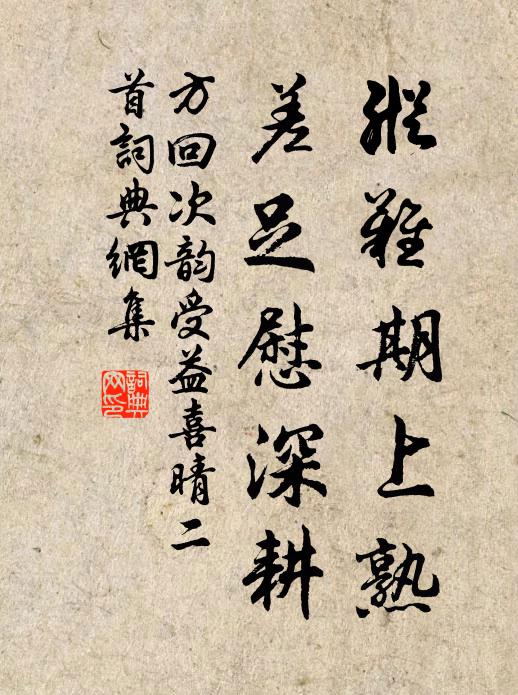 縱難期上熟
差足慰深耕
方回次韵受益喜晴二
首詞典網集
詞典网印